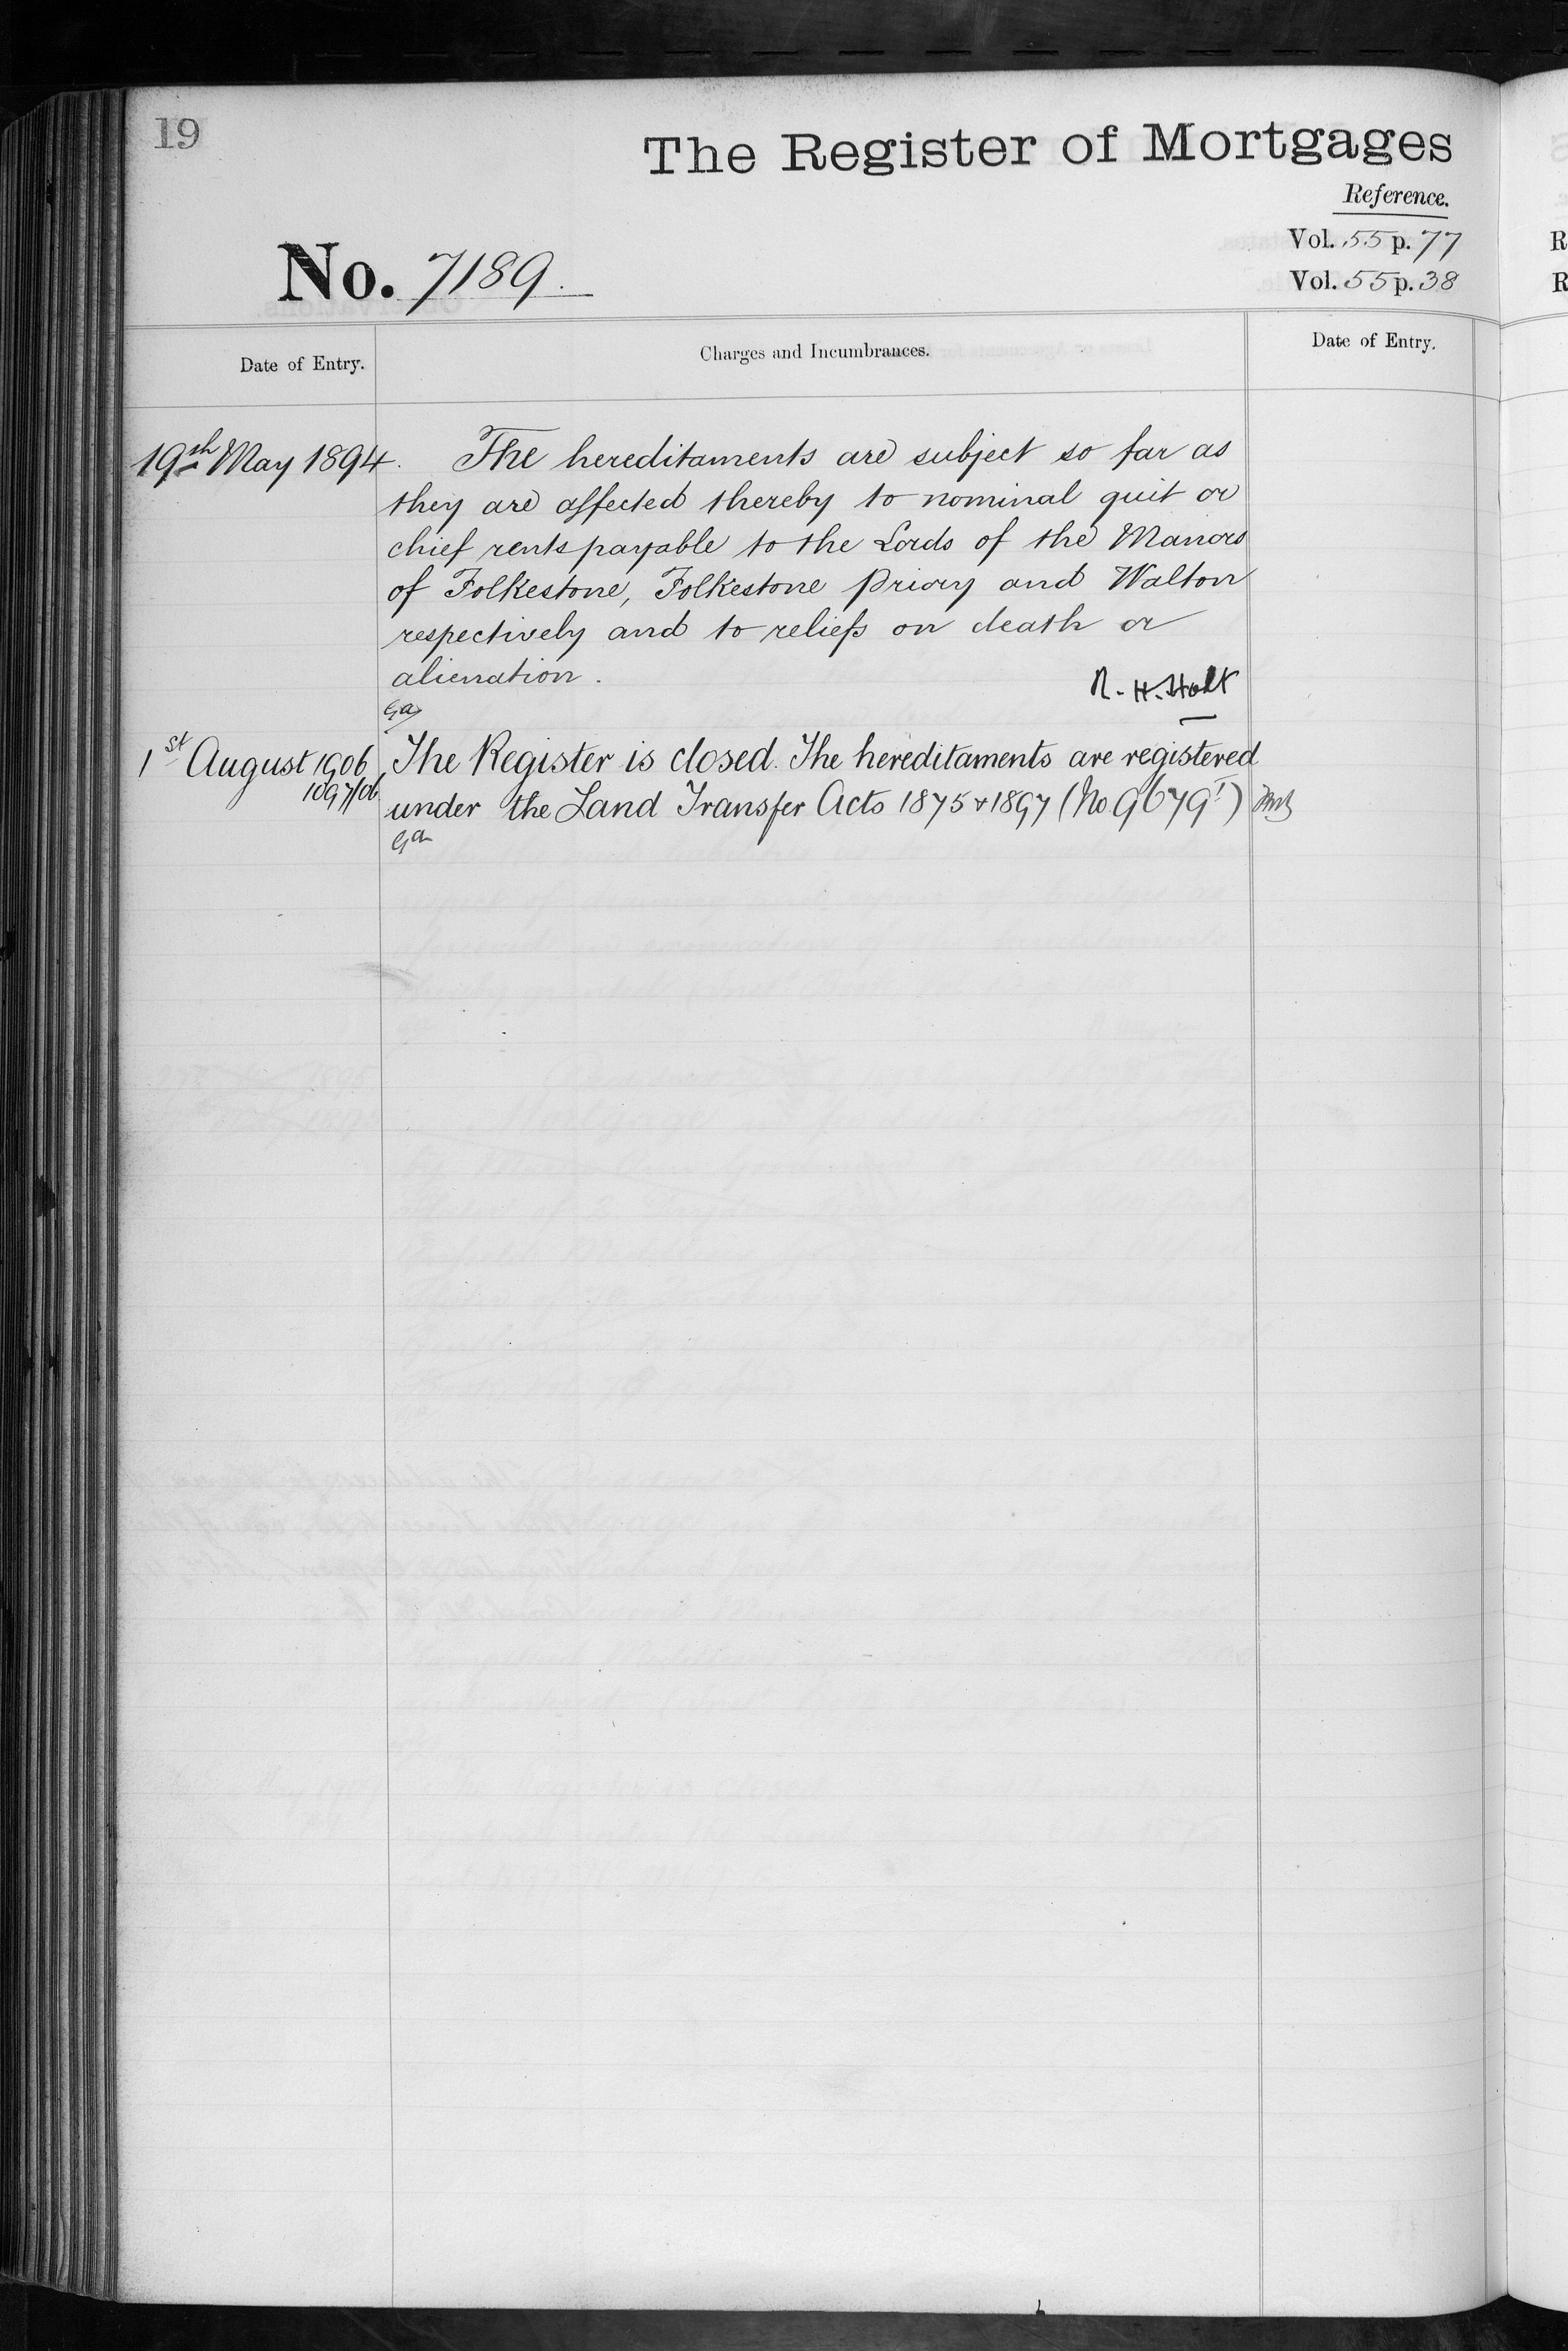 19
The Register of Mortgages
Reference.
Vol. 55 p. 77
No. 7189.
Vol. 55 p. 38
Date of Entry.
Charges and Incumbrances.
Date of Entry.
19th May 1894. The hereditaments are subject so far as
they are affected thereby to nominal quit or
chief rents payable to the Lords of the Manors
of Folkestone, Folkestone Priory and Walton
respectively and to reliefs on death or
alienation.
R. H. Holt
Ga
1st August 1906 The Register is closed. The hereditaments are registered
1097/06 under the Land Transfer Acts 1875 & 1897 (No 9679I)
Ga